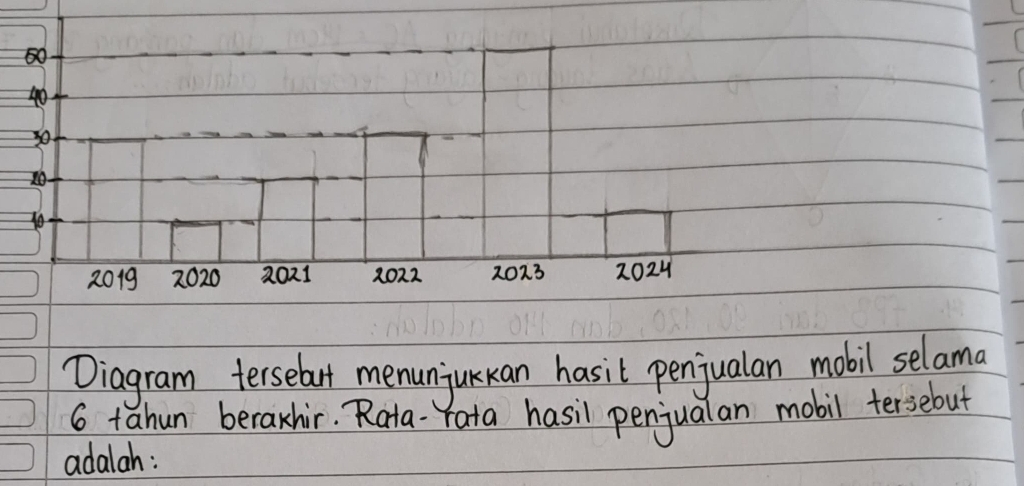 50
40
30
20
10
2019 2020 2021 2022 2023 2024
Diagram tersebut menunjukkan hasil penjualan mobil selama
6 tahun berakhir. Rata-rata hasil penjualan mobil tersebut
adalah: